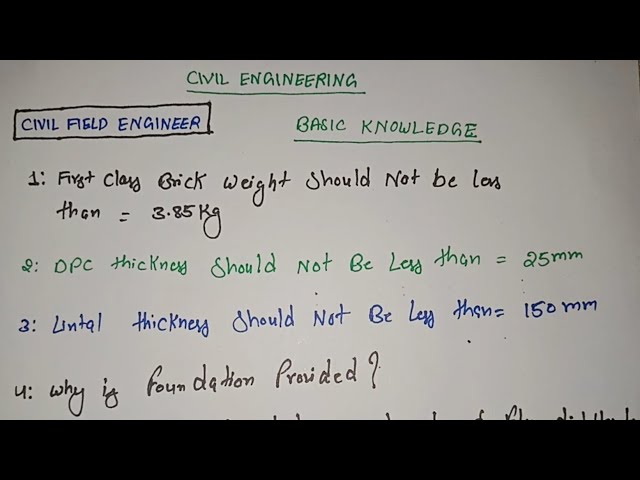 CIVIL ENGINEERING
CIVIL FIELD ENGINEER
BASIC KNOWLEDGE
1: First Class Brick Weight Should Not be less
than = 3.85Kg
2: DPC thickness Should Not Be Less than = 25mm
3: Lintal thickness Should Not Be Less than = 150mm
4: Why is Foundation Provided?